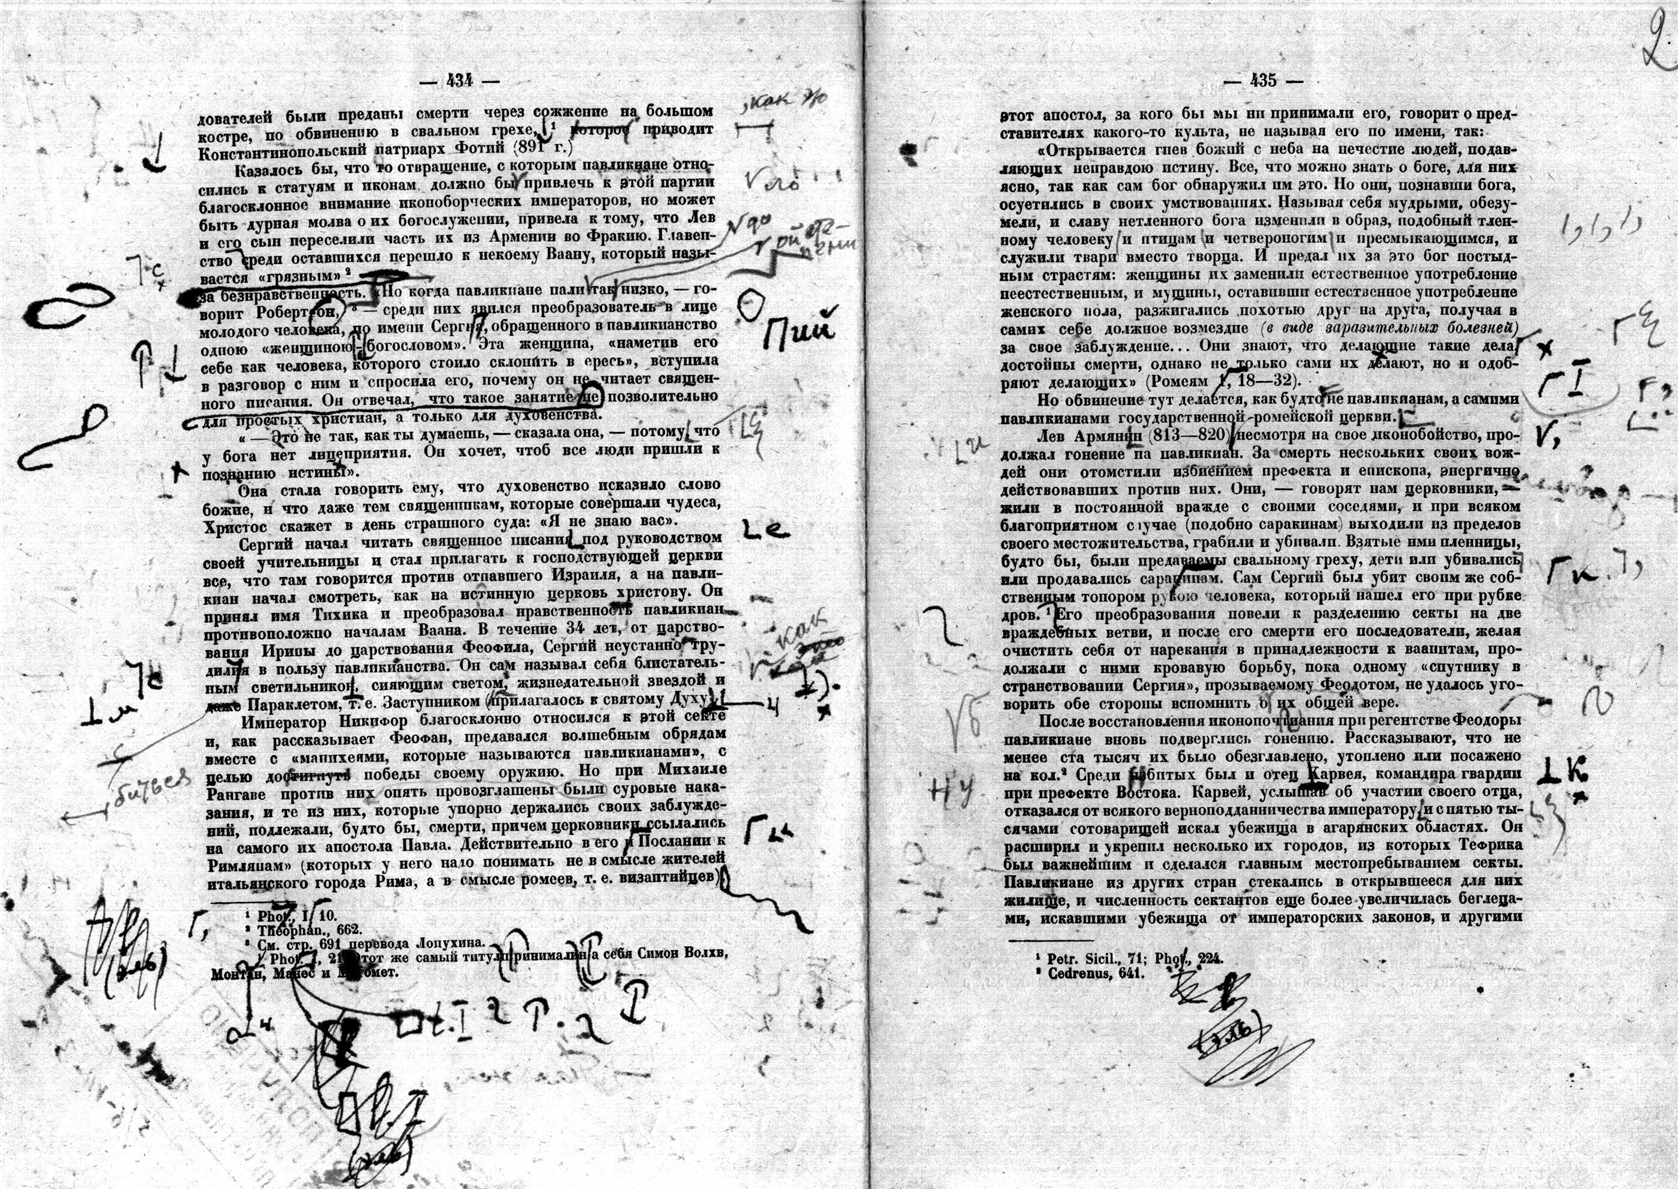 — 434 —
дователей были преданы смерти через сожжение на большом
костре, по обвинению в свальном грехе, ¹ которое приводит
Константинопольский патриарх Фотий (891 г.)
Казалось бы, что то отвращение, с которым павликиане отно-
сились к статуям и иконам должно бы привлечь к этой партии
благосклонное внимание иконоборческих императоров, но может
быть дурная молва о их богослужении, привела к тому, что Лев
и его сын переселили часть их из Армении во Фракию. Главен-
ство среди оставшихся перешло к некоему Ваану, который назы-
вается «грязным» ²
за безнравственность. «Но когда павликиане пали так низко, — го-
ворит Робертсон, ³ — среди них явился преобразователь в лице
молодого человека, по имени Сергия, обращенного в павликианство
одною «женщиною богословом». Эта женщина, «наметив его
себе как человека, которого стоило склонить в ересь», вступила
в разговор с ним и спросила его, почему он не читает священ-
ного писания. Он отвечал, что такое занятие не позволительно
для простых христиан, а только для духовенства.
« — Это не так, как ты думаешь, — сказала она, — потому что
у бога нет лицеприятия. Он хочет, чтоб все люди пришли к
познанию истины».
Она стала говорить ему, что духовенство исказило слово
божие, и что даже тем священникам, которые совершали чудеса,
Христос скажет в день страшного суда: «Я не знаю вас».
Сергий начал читать священное писание под руководством
своей учительницы и стал прилагать к господствующей церкви
все, что там говорится против отпавшего Израиля, а на павли-
киан начал смотреть, как на истинную церковь христову. Он
принял имя Тихика и преобразовал нравственность павликиан
противоположно началам Ваана. В течение 34 лет, от царство-
вания Ирины до царствования Феофила, Сергий неустанно тру-
дился в пользу павликианства. Он сам называл себя блистатель-
ным светильником, сияющим светом, жизнедательной звездой и
даже Параклетом, т. е. Заступником (прилагалось к святому Духу)
Император Никифор благосклонно относился к этой секте
и, как рассказывает Феофан, предавался волшебным обрядам
вместе с «манихеями, которые называются павликианами», с
целью достигнуть победы своему оружию. Но при Михаиле
Рангаве против них опять провозглашены были суровые нака-
зания, и те из них, которые упорно держались своих заблужде-
ний, подлежали, будто бы, смерти, причем церковники ссылались
на самого их апостола Павла. Действительно в его Послании к
Римлянам» (которых у него надо понимать не в смысле жителей
итальянского города Рима, а в смысле ромеев, т. е. византийцев)
¹ Phot., I, 10.
² Theophan., 662.
³ См. стр. 691 перевода Лопухина.
тот же самый титул принимали на себя Симон Волхв,
Монтан, Манес и Магомет.
Пий
как
битьев
— 435 —
этот апостол, за кого бы мы ни принимали его, говорит о пред-
ставителях какого-то культа, не называя его по имени, так:
«Открывается гнев божий с неба на нечестие людей, подав-
ляющих неправдою истину. Все, что можно знать о боге, для них
ясно, так как сам бог обнаружил им это. Но они, познавши бога,
осуетились в своих умствованиях. Называя себя мудрыми, обезу-
мели, и славу нетленного бога изменили в образ, подобный тлен-
ному человеку и птицам и четвероногим и пресмыкающимся, и
служили твари вместо творца. И предал их за это бог постыд-
ным страстям: женщины их заменили естественное употребление
неестественным, и мущины, оставивши естественное употребление
женского пола, разжигались похотью друг на друга, получая в
самих себе должное возмездие (в виде заразительных болезней)
за свое заблуждение... Они знают, что делающие такие дела
достойны смерти, однако не только сами их делают, но и одоб-
ряют делающих» (Ромеям 1, 18—32).
Но обвинение тут делается, как будто не павликианам, а самими
павликианами государственной ромейской церкви.
Лев Армянин (813—820) несмотря на свое иконобойство, про-
должал гонение на павликиан. За смерть нескольких своих вож-
дей они отомстили избиением префекта и епископа, энергично
действовавших против них. Они, — говорят нам церковники, —
жили в постоянной вражде с своими соседями, и при всяком
благоприятном случае (подобно саракинам) выходили из пределов
своего местожительства, грабили и убивали. Взятые ими пленницы,
будто бы, были предаваемы свальному греху, дети или убивались
или продавались саракинам. Сам Сергий был убит своим же соб-
ственным топором рукою человека, который нашел его при рубке
дров. ¹ Его преобразования повели к разделению секты на две
враждебных ветви, и после его смерти его последователи, желая
очистить себя от нарекания в принадлежности к ваанитам, про-
должали с ними кровавую борьбу, пока одному «спутнику в
странствовании Сергия», прозываемому Феодотом, не удалось уго-
ворить обе стороны вспомнить о их общей вере.
После восстановления иконопочитания при регентстве Феодоры
павликиане вновь подверглись гонению. Рассказывают, что не
менее ста тысяч их было обезглавлено, утоплено или посажено
на кол.² Среди убитых был и отец Карвея, командира гвардии
при префекте Востока. Карвей, услышав об участи своего отца,
отказался от всякого верноподданничества императору и с пятью ты-
сячами сотоварищей искал убежища в агарянских областях. Он
расширил и укрепил несколько их городов, из которых Тефрика
был важнейшим и сделался главным местопребыванием секты.
Павликиане из других стран стекались в открывшееся для них
жилище, и численность сектантов еще более увеличилась беглеца-
ми, искавшими убежища от императорских законов, и другими
¹ Petr. Sicil., 71; Phot., 224.
² Cedrenus, 641.
2